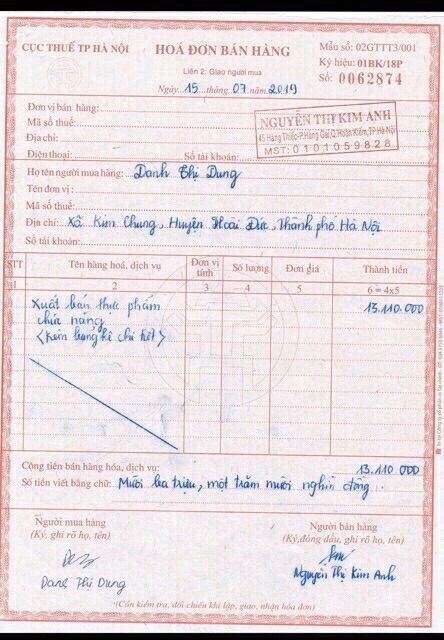 CỤC THUẾ TP HÀ NỘI
HOÁ ĐƠN BÁN HÀNG
Liên 2: Giao người mua
Ngày 15 tháng 07 năm 2019
Mẫu số: 02GTTT3/001
Ký hiệu: 01BK/18P
Số: 0062874
Đơn vị bán hàng:
Mã số thuế:
Địa chỉ:
Điện thoại: Số tài khoản:
NGUYỄN THỊ KIM ANH
45 Hàng Thiếc-P.Hàng Gai,Q.Hoàn Kiếm,TP.Hà Nội
MST: 0101059828
Họ tên người mua hàng: Danh Thị Dung
Tên đơn vị:
Mã số thuế:
Địa chỉ: Xã Kim Chung, Huyện Hoài Đức, Thành phố Hà Nội
Số tài khoản:
STT Tên hàng hoá, dịch vụ Đơn vị tính Số lượng Đơn giá Thành tiền
1 2 3 4 5 6 = 4x5
Xuất bán thực phẩm 13.110.000
chức năng
<Kèm bảng kê chi tiết>
Cộng tiền bán hàng hóa, dịch vụ: 13.110.000
Số tiền viết bằng chữ: Mười ba triệu, một trăm mười nghìn đồng.
Người mua hàng
(Ký, ghi rõ họ, tên)
Danh Thị Dung
Người bán hàng
(Ký, đóng dấu, ghi rõ họ, tên)
Nguyễn Thị Kim Anh
(Cần kiểm tra, đối chiếu khi lập, giao, nhận hóa đơn)